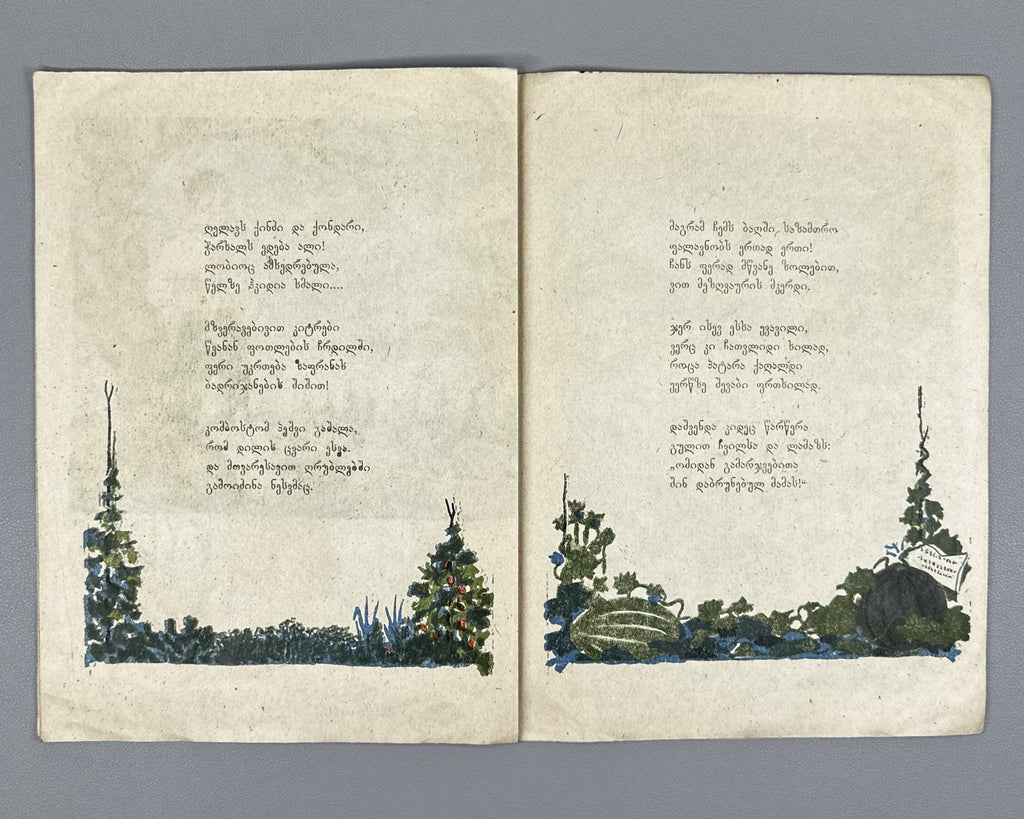 ღელავს ქინძი და ქონდარი,
ჭარხალს ედება ალი!
ლობიოც ამხედრებულა,
წელზე ჰკიდია ხმალი....
მზვერავებივით კიტრები
წვანან ფოთლების ჩრდილში,
ფერი უკრთება ზაფრანას
ბადრიჯანების შიშით!
კომბოსტომ პეშვი გაშალა,
რომ დილის ცვარი ესვა.
და მთვარესავით ღრუბლებში
გამოიძინა ნესვმაც.
მაგრამ ჩემს ბაღში საზამთრო
ფალავნობს ერთად ერთი!
ჩანს ფერად მწვანე ზოლებით,
ვით მეზღვაურის მკერდი.
ჯერ ისევ ესხა ყვავილი,
ვერც კი ჩათვლიდი ხილად,
როცა პატარა ქაღალდი
ყურწზე შევაბი ფრთხილად.
დაშვენდა კიდეც წარწერა
გულით ჩვილსა და ლამაზს:
„ომიდან გამარჯვებითა
შინ დაბრუნებულ მამას!“